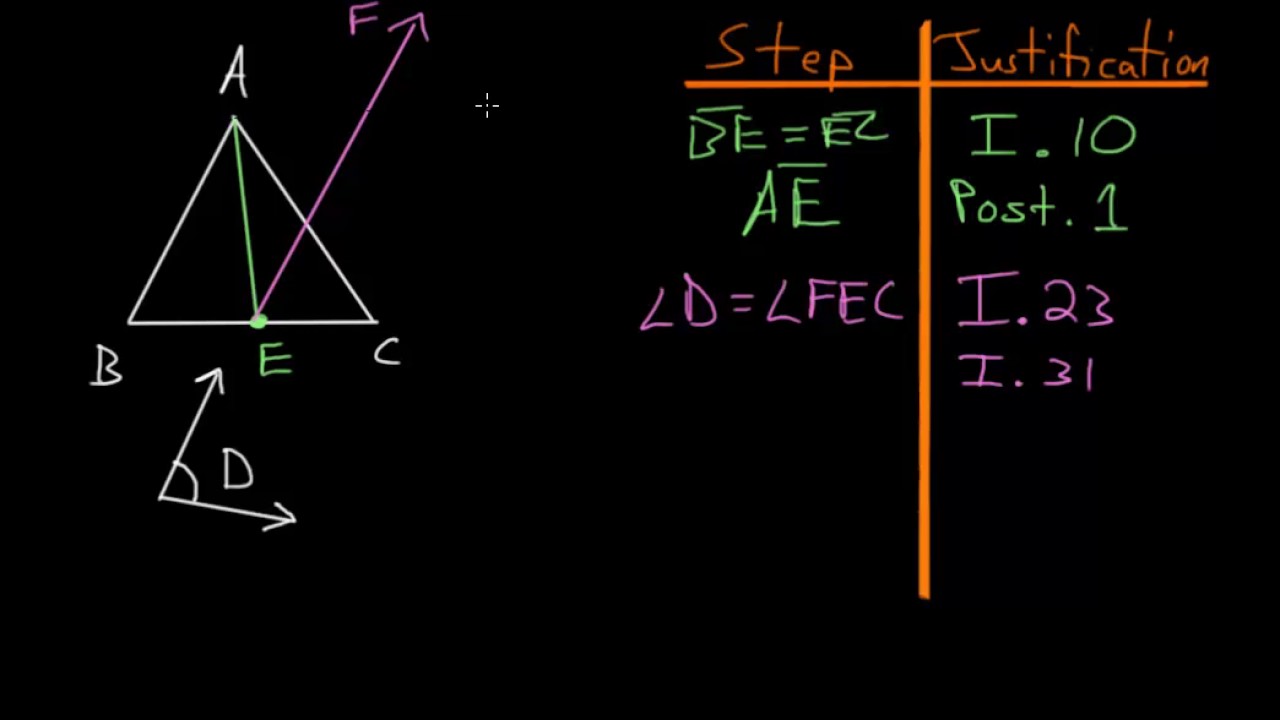 F
A
B
E
C
D
Step Justification
B̅E̅ = E̅C̅ I.10
A̅E̅ Post. 1
∠D = ∠FEC I.23
I.31